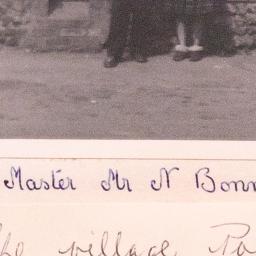 Master Mr N Bonn
he village Po